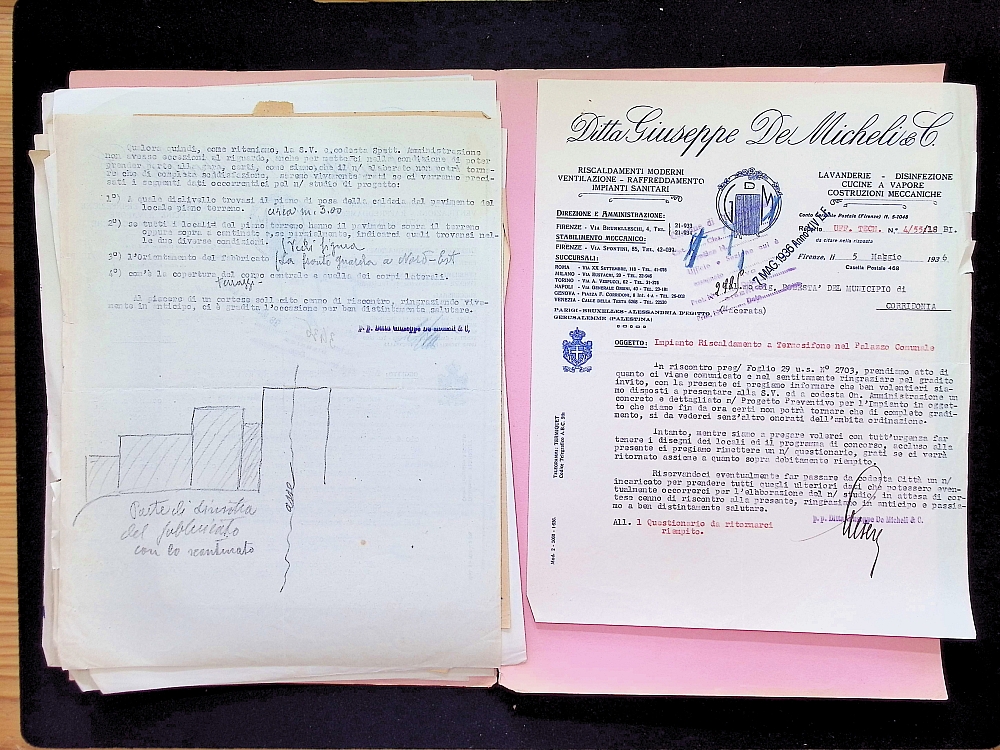 Qualora quindi, come riteniamo, la S.V. e codesta Spett. Amministrazione
non avesse eccezioni al riguardo, anche per metterci nella condizione di poter
sati i seguenti dati occorrentici pel n/ studio di progetto:
1°) A quale dislivello trovasi il piano di posa della caldaia dal pavimento del
locale piano terreno.
circa m. 3.00
2°) se tutti i locali del piano terreno hanno il pavimento sopra il terreno
oppure sopra a cantinati e, se parzialmente, indicarci quali trovansi nel-
le due diverse condizioni.
Vedi figura
3°) l'orientamento del fabbricato
La fronte guarda a Nord-Est
4°) com'è la copertura del corpo centrale e quella dei corpi laterali.
terrazzi-
Al piacere di un cortese sollecito cenno di riscontro, ringraziando viva-
mente in anticipo, ci è gradita l'occasione per ben distintamente salutare.
p. p. Ditta Giuseppe De Micheli & C.
asse
Parte di sinistra
del fabbricato
con lo scantinato
Ditta Giuseppe De Micheli & C.
RISCALDAMENTI MODERNI
VENTILAZIONE - RAFFREDDAMENTO
IMPIANTI SANITARI
LAVANDERIE - DISINFEZIONE
CUCINE A VAPORE
COSTRUZIONI MECCANICHE
DIREZIONE E AMMINISTRAZIONE:
FIRENZE - VIA BRUNELLESCHI, 4, TEL.
STABILIMENTO MECCANICO:
FIRENZE - VIA SPONTINI, 85, TEL. 42-092.
SUCCURSALI:
ROMA - VIA XX SETTEMBRE, 118 - TEL. 41-078
MILANO - VIA RUSTACHI, 29 - TEL. 23-236
TORINO - VIA A. VESPUCCI, 62 - TEL.
NAPOLI - VIA GENERALE ORSINI, 40 - TEL.
GENOVA - PIAZZA F. CORRIDONI, 8 Int. 4 A - TEL.
VENEZIA - CALLE DELLA TESTA - TEL. 22530
PARIGI-BRUXELLES-ALESSANDRIA D'EGITTO
GERUSALEMME (PALESTINA)
Conto corrente Postale (Firenze) N. 5-1048
Reparto UFF. TECN. N.° 4/55/18 BI.
da citare nella risposta
Firenze, li 5 Maggio 1936
Casella Postale 468
7 MAG. 1936 Anno XIV E.F.
PODESTA' DEL MUNICIPIO di
CORRIDONIA
(Macerata)
OGGETTO: Impianto Riscaldamento a Termosifone nel Palazzo Comunale
In riscontro preg/ Foglio 29 u.s. N° 2703, prendiamo atto di
quanto ci viene comunicato e nel sentitamente ringraziare pel gradito
invito, con la presente ci pregiamo informare che ben volentieri sia-
mo disposti a presentare alla S.V. ed a codesta On. Amministrazione un
concreto e dettagliato n/ Progetto Preventivo per l'Impianto in ogget-
to che siamo fin da ora certi non potrà tornare che di completo gradi-
mento, sì da vederci senz'altro onorati dell'ambita ordinazione.
Intanto, mentre siamo a pregare volerci con tutt'urgenza far
tenere i disegni dei locali ed il programma di concorso, accluso alla
presente ci pregiamo rimettere un n/ questionario, grati se ci verrà
ritornato assieme a quanto sopra debitamente riempito.
Riservandoci eventualmente far passare da codesta Città un n/
incaricato per prendere tutti quegli ulteriori dati che potessero even-
tualmente occorrerci per l'elaborazione del n/ studio, in attesa di cor-
tese cenno di riscontro alla presente, ringraziamo in anticipo e passia-
mo a ben distintamente salutare.
p. p. Ditta Giuseppe De Micheli & C.
All. 1 Questionario da ritornarci
riempito.
TELEGRAMMI: TERMOQUET
Codice Telegrafico A.B.C. 5th